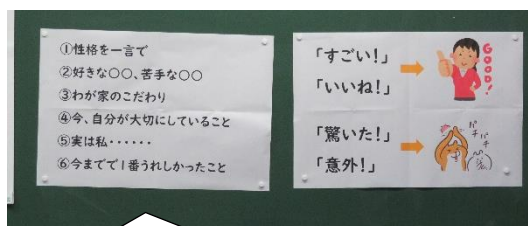 ①性格を一言で
②好きな○○、苦手な○○
③わが家のこだわり
④今、自分が大切にしていること
⑤実は私・・・・・・
⑥今までで1番うれしかったこと
「すごい!」
「いいね!」
GOOD!
「驚いた!」
「意外!」
パチ
パチ